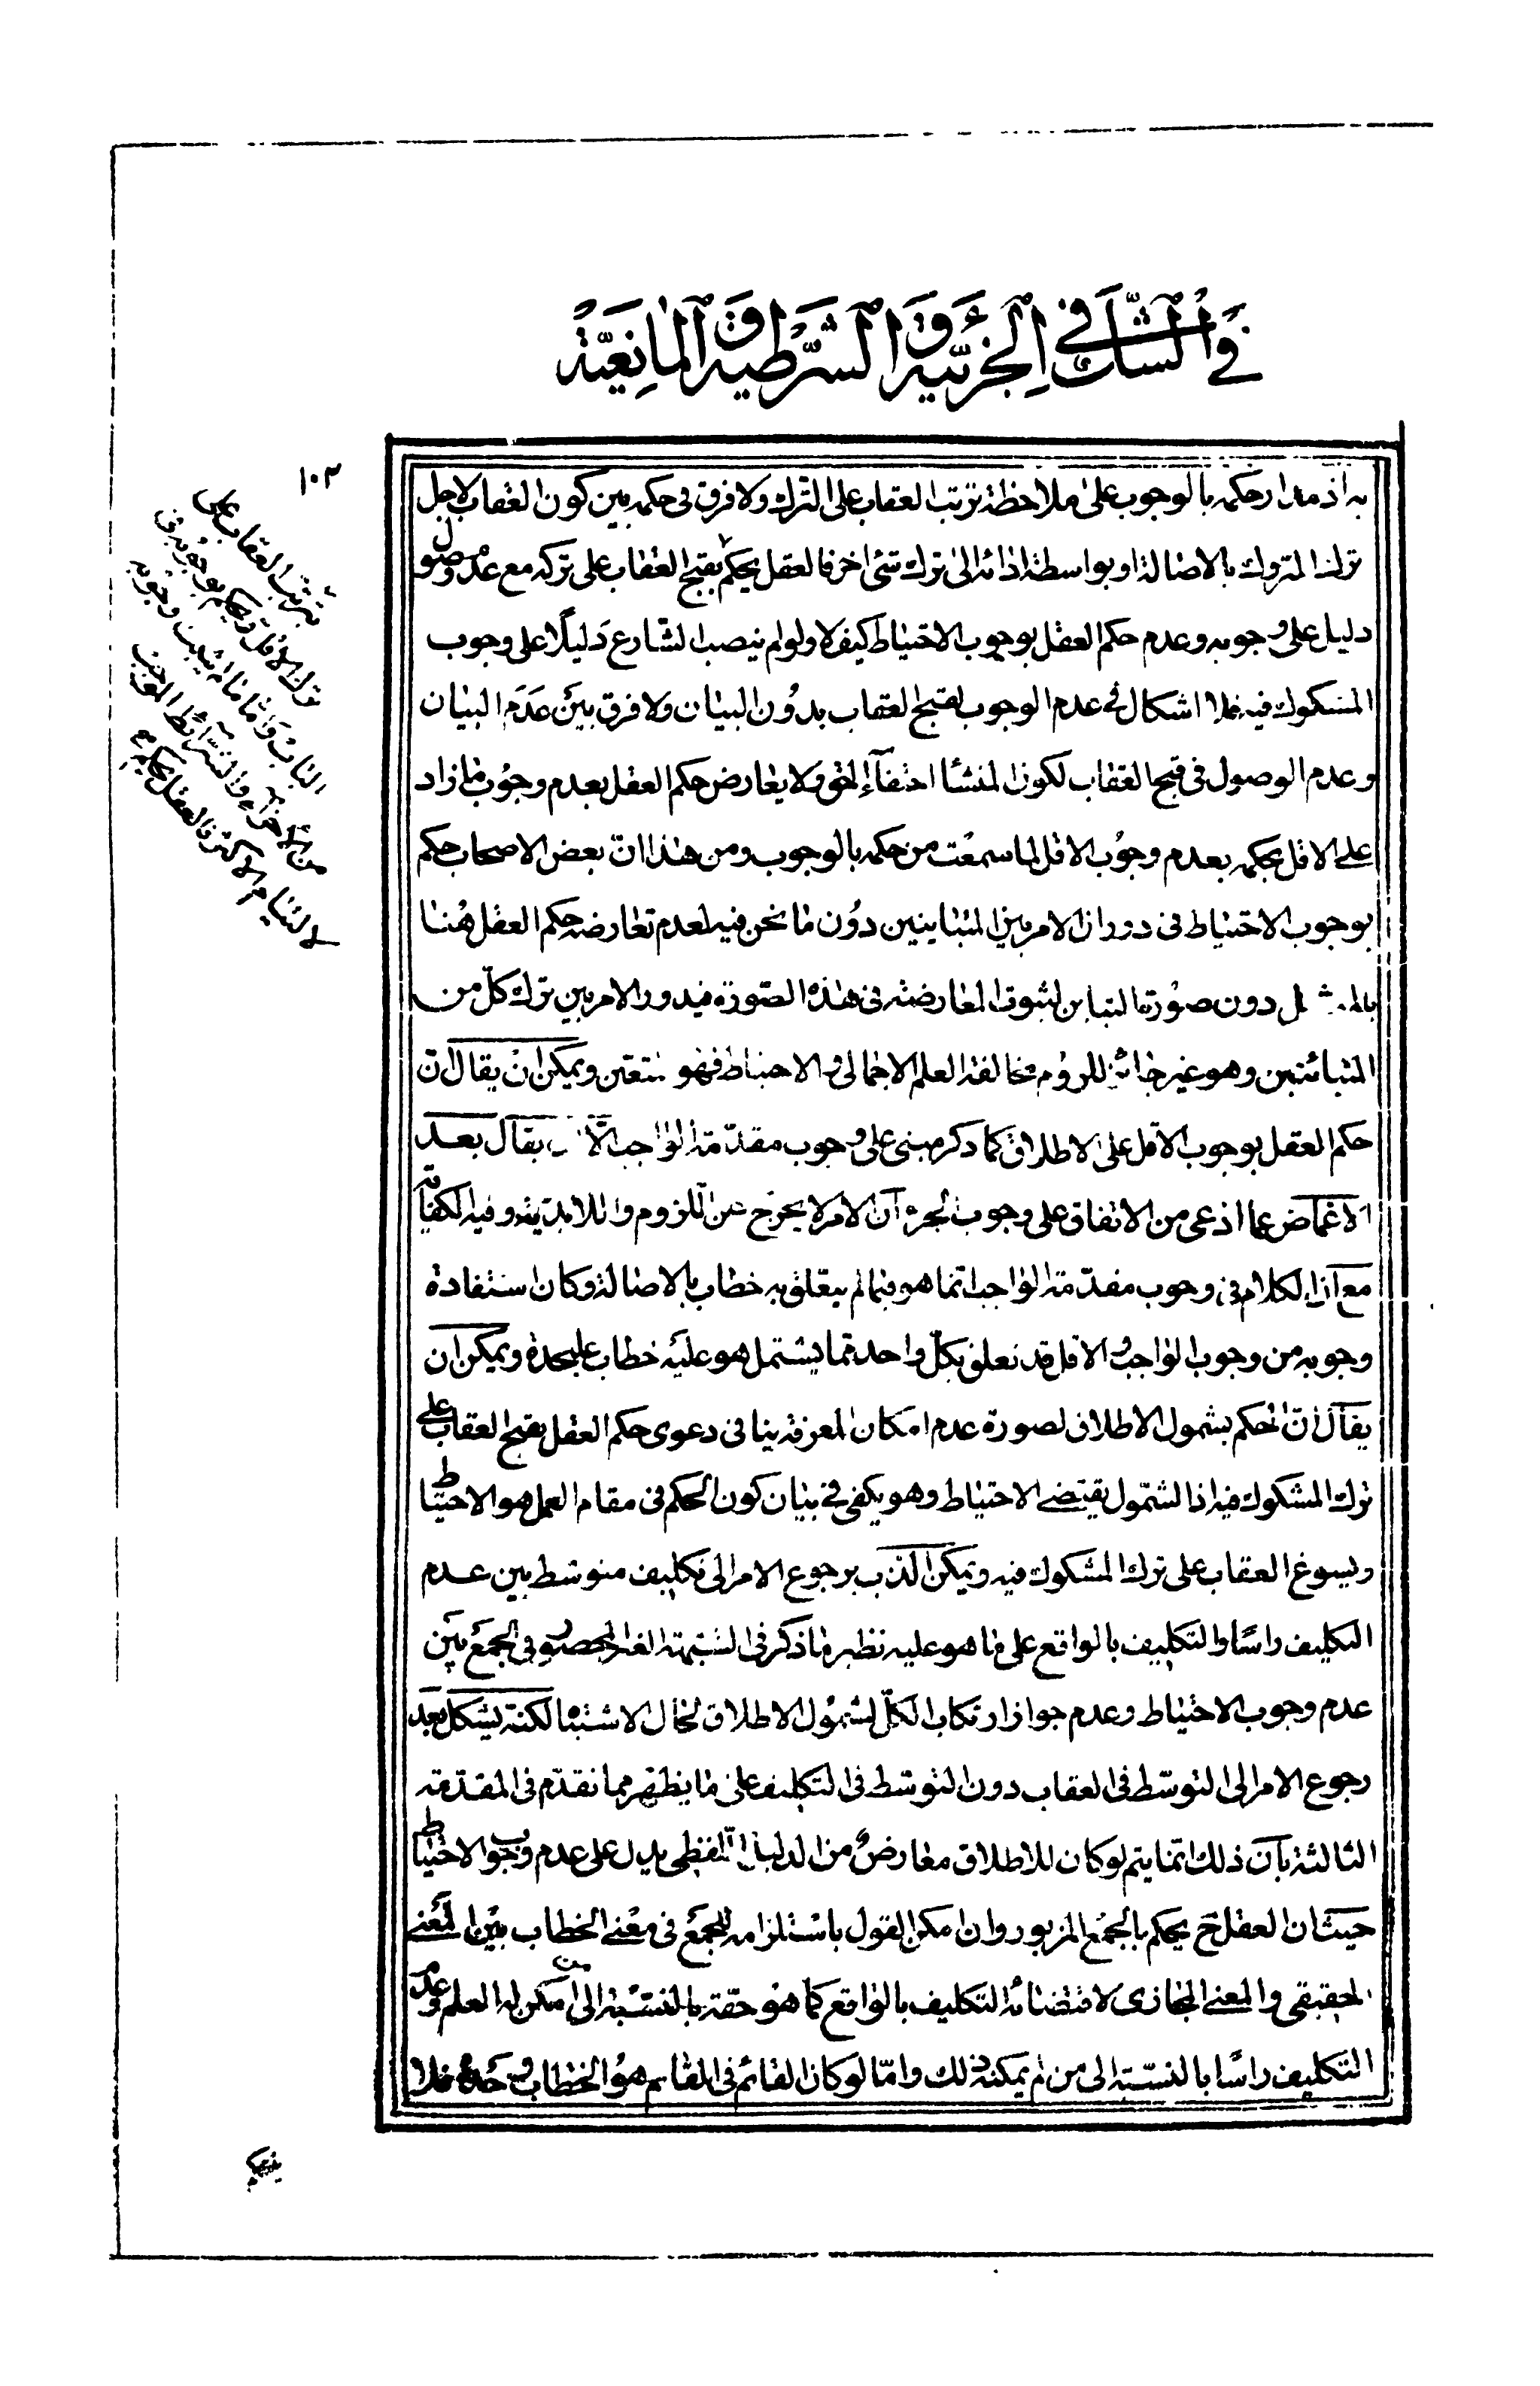 في الشك في الجزئية والشرطية والمانعية
١٠٣
به اذ مدار حكمه بالوجوب على ملاحظة ترتب العقاب على الترك ولا فرق في حكمه بين كون العقاب لاجل
ترك المتروك بالاصالة او بواسطة ادائه الى ترك شئ اخر فالعقل يحكم بقبح العقاب على تركه مع عدم وصول
دليل على وجوبه وعدم حكم العقل بوجوب الاحتياط كيف لا ولو لم ينصب الشارع دليلًا على وجوب
المشكوك فيه فلا اشكال في عدم الوجوب لقبح العقاب بدون البيان ولا فرق بين عدم البيان
وعدم الوصول في قبح العقاب لكون المنشأ اختفاء الحق ولا يعارض حكم العقل بعدم وجوب ما زاد
على الاقل بحكمه بعدم وجوب الاقل لما سمعت من حكمه بالوجوب ومن هذا ان بعض الاصحاب حكم
بوجوب الاحتياط في دوران الامر بين المتباينين دون ما نحن فيه لعدم تعارضه حكم العقل هنا
بالمثل دون صورة التباين لثبوت المعارضة في هذه الصورة فيدور الامر بين ترك كل من
المتبائنين وهو غير جائز للزوم مخالفة العلم الاجمالي والاحتياط فهو متعين ويمكن ان يقال ان
حكم العقل بوجوب الاقل على الاطلاق كما ذكر مبني على وجوب مقدمة الواجب الا ان يقال بعد
الاغماض عما ادعى من الاتفاق على وجوب الجزء ان الامر لا يخرج عن اللزوم واللابدية وفيه الكفاية
مع ان الكلام في وجوب مقدمة الواجب انما هو فيما لم يتعلق به خطاب بالاصالة وكان استفادة
وجوبه من وجوب الواجب والاقل قد تعلق بكل واحد مما يشتمل هو عليه خطاب عليحدة ويمكن ان
يقال ان الحكم بشمول الاطلاق لصورة عدم امكان المعرفة ينافي دعوى حكم العقل بقبح العقاب على
ترك المشكوك فيه اذ الشمول يقتضي الاحتياط وهو يكفي في بيان كون الحكم في مقام العمل هو الاحتياط
ويسوغ العقاب على ترك المشكوك فيه ويمكن الذب برجوع الامر الى تكليف متوسط بين عدم
التكليف راسًا والتكليف بالواقع على ما هو عليه نظير ما ذكر في الشبهة الغير المحصورة في الجمع بين
عدم وجوب الاحتياط وعدم جواز ارتكاب الكل لشمول الاطلاق لحال الاشتباه لكنه يشكل بعد
رجوع الامر الى التوسط في العقاب دون التوسط في التكليف على ما يظهر مما تقدم في المقدمة
الثالثة بان ذلك انما يتم لو كان للاطلاق معارض من الدليل اللفظي يدل على عدم وجوب الاحتياط
حيث ان العقل ح يحكم بالجمع المزبور وان امكن القول باستلزامه للجمع في معنى الخطاب بين المعنى
الحقيقي والمعنى المجازي لاقتضائه التكليف بالواقع كما هو حقه بالنسبة الى من امكن له العلم وعدم
التكليف راسًا بالنسبة الى من لم يمكنه ذلك واما لو كان القائم في المقام هو الخطاب وحده فلا
بترتب العقاب على
ترك الاقل ويحكم بوجوبه في
الباب واما ما لم يثبت وجوبه
من الاجزاء والشرائط الواجب
الاكثر فالعقل يحكم